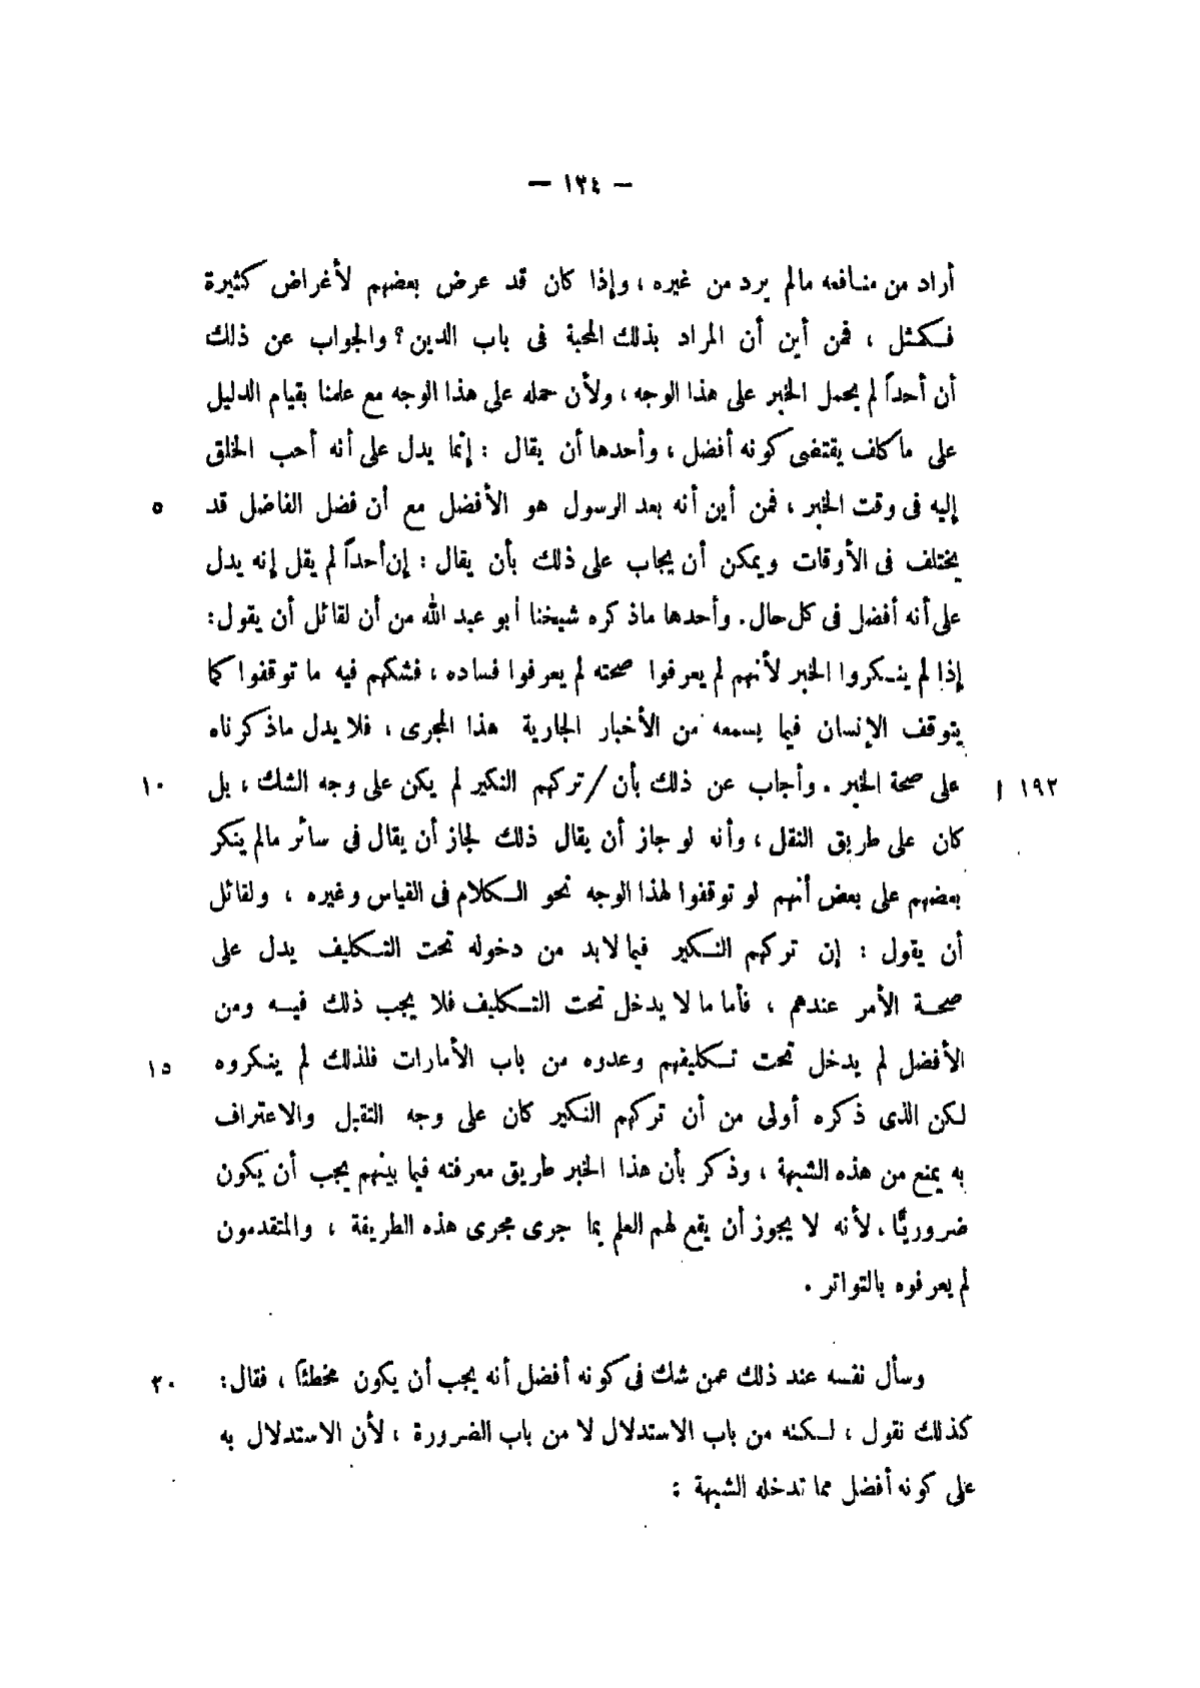 — ١٣٤ —
أراد من منافعه مالم يرد من غيره ، وإذا كان قد عرض بعضهم لأغراض كثيرة
فكمثل ، فمن أين أن المراد بذلك المحبة فى باب الدين ؟ والجواب عن ذلك
أن أحداً لم يحمل الخبر على هذا الوجه ، ولأن حمله على هذا الوجه مع علمنا بقيام الدليل
على ماكلف يقتضى كونه أفضل ، وأحدها أن يقال : إنما يدل على أنه أحب الخلق
إليه فى وقت الخبر ، فمن أين أنه بعد الرسول هو الأفضل مع أن فضل الفاضل قد ٥
يختلف فى الأوقات ويمكن أن يجاب على ذلك بأن يقال : إن أحداً لم يقل إنه يدل
على أنه أفضل فى كل حال . وأحدها ماذكره شيخنا أبو عبد الله من أن لقائل أن يقول :
إذا لم ينكروا الخبر لأنهم لم يعرفوا صحته لم يعرفوا فساده ، فشكهم فيه ما توقفوا كما
يتوقف الإنسان فيما يسمعه من الأخبار الجارية هذا المجرى ، فلا يدل ماذكرناه
١٩٢ ا على صحة الخبر . وأجاب عن ذلك بأن / تركهم النكير لم يكن على وجه الشك ، بل ١٠
كان على طريق النقل ، وأنه لو جاز أن يقال ذلك لجاز أن يقال فى سائر مالم ينكر
بعضهم على بعض أنهم لو توقفوا لهذا الوجه نحو الكلام فى القياس وغيره ، ولقائل
أن يقول : إن تركهم النكير فيما لابد من دخوله تحت التكليف يدل على
صحة الأمر عندهم ، فأما ما لا يدخل تحت التكليف فلا يجب ذلك فيه ومن
الأفضل لم يدخل تحت تكليفهم وعدوه من باب الأمارات فلذلك لم ينكروه ١٥
لكن الذى ذكره أولى من أن تركهم النكير كان على وجه التقبل والاعتراف
به يمنع من هذه الشبهة ، وذكر بأن هذا الخبر طريق معرفته فيما بينهم يجب أن يكون
ضروريًّا ، لأنه لا يجوز أن يقع لهم العلم بما جرى مجرى هذه الطريقة ، والمتقدمون
لم يعرفوه بالتواتر .
وسأل نفسه عند ذلك عمن شك فى كونه أفضل أنه يجب أن يكون مخطئاً ، فقال : ٢٠
كذلك نقول ، لكنه من باب الاستدلال لا من باب الضرورة ، لأن الاستدلال به
على كونه أفضل مما تدخله الشبهة :